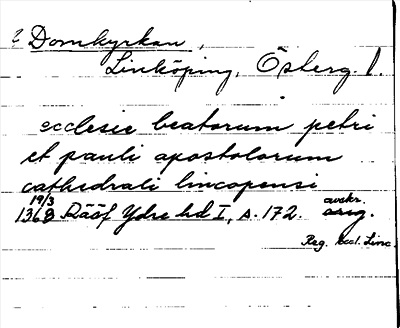 ? Domkyrkan,
Linköping, Österg. l.
ecclesie beatorum petri
et pauli apostolorum
cathedrali lincopensi
19/3 avskr.
1368 Rääf Ydre hd I, s. 172. orig.
Reg. eccl. Linc.